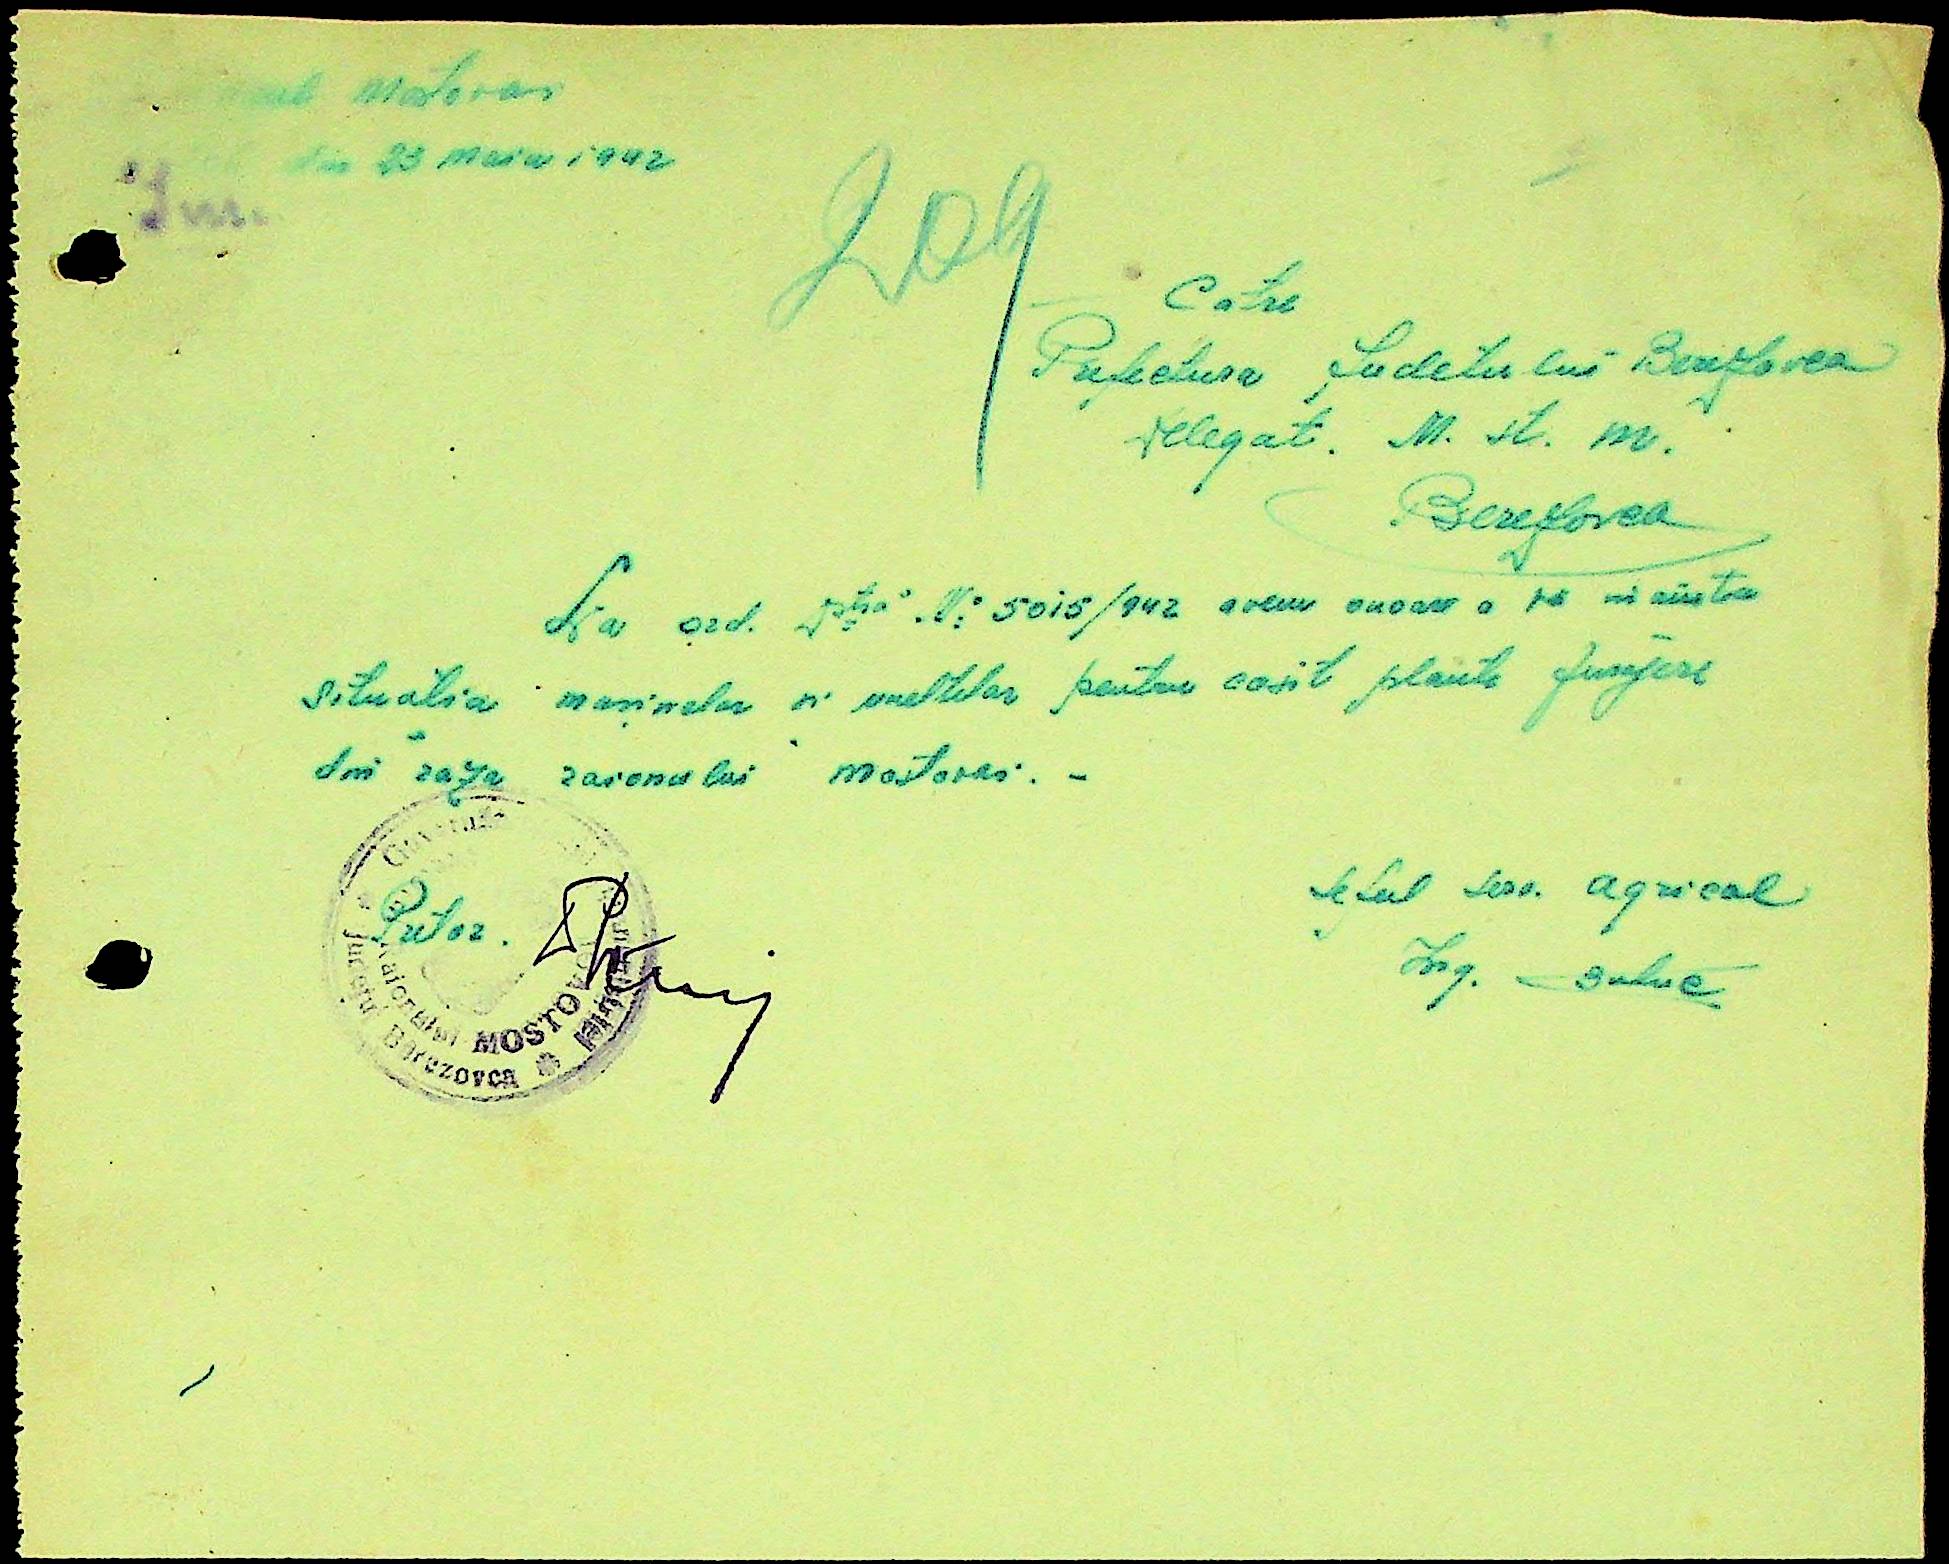 Mostovoi
din 23 Maiu 1942
Catre
Prefectura Judetului Berezovca
Delegat. M. St. M.
Berezovca
La ord. Dstră Nº 5015/942 avem onoare a vă inainta
situatia maşinelor si uneltelor pentru cosit plante furajere
din raza raionului Mostovoi. -
Pretor.
Şeful serv. agricol
Ing.
Raionului MOSTOVOI
Judeţul Berezovca